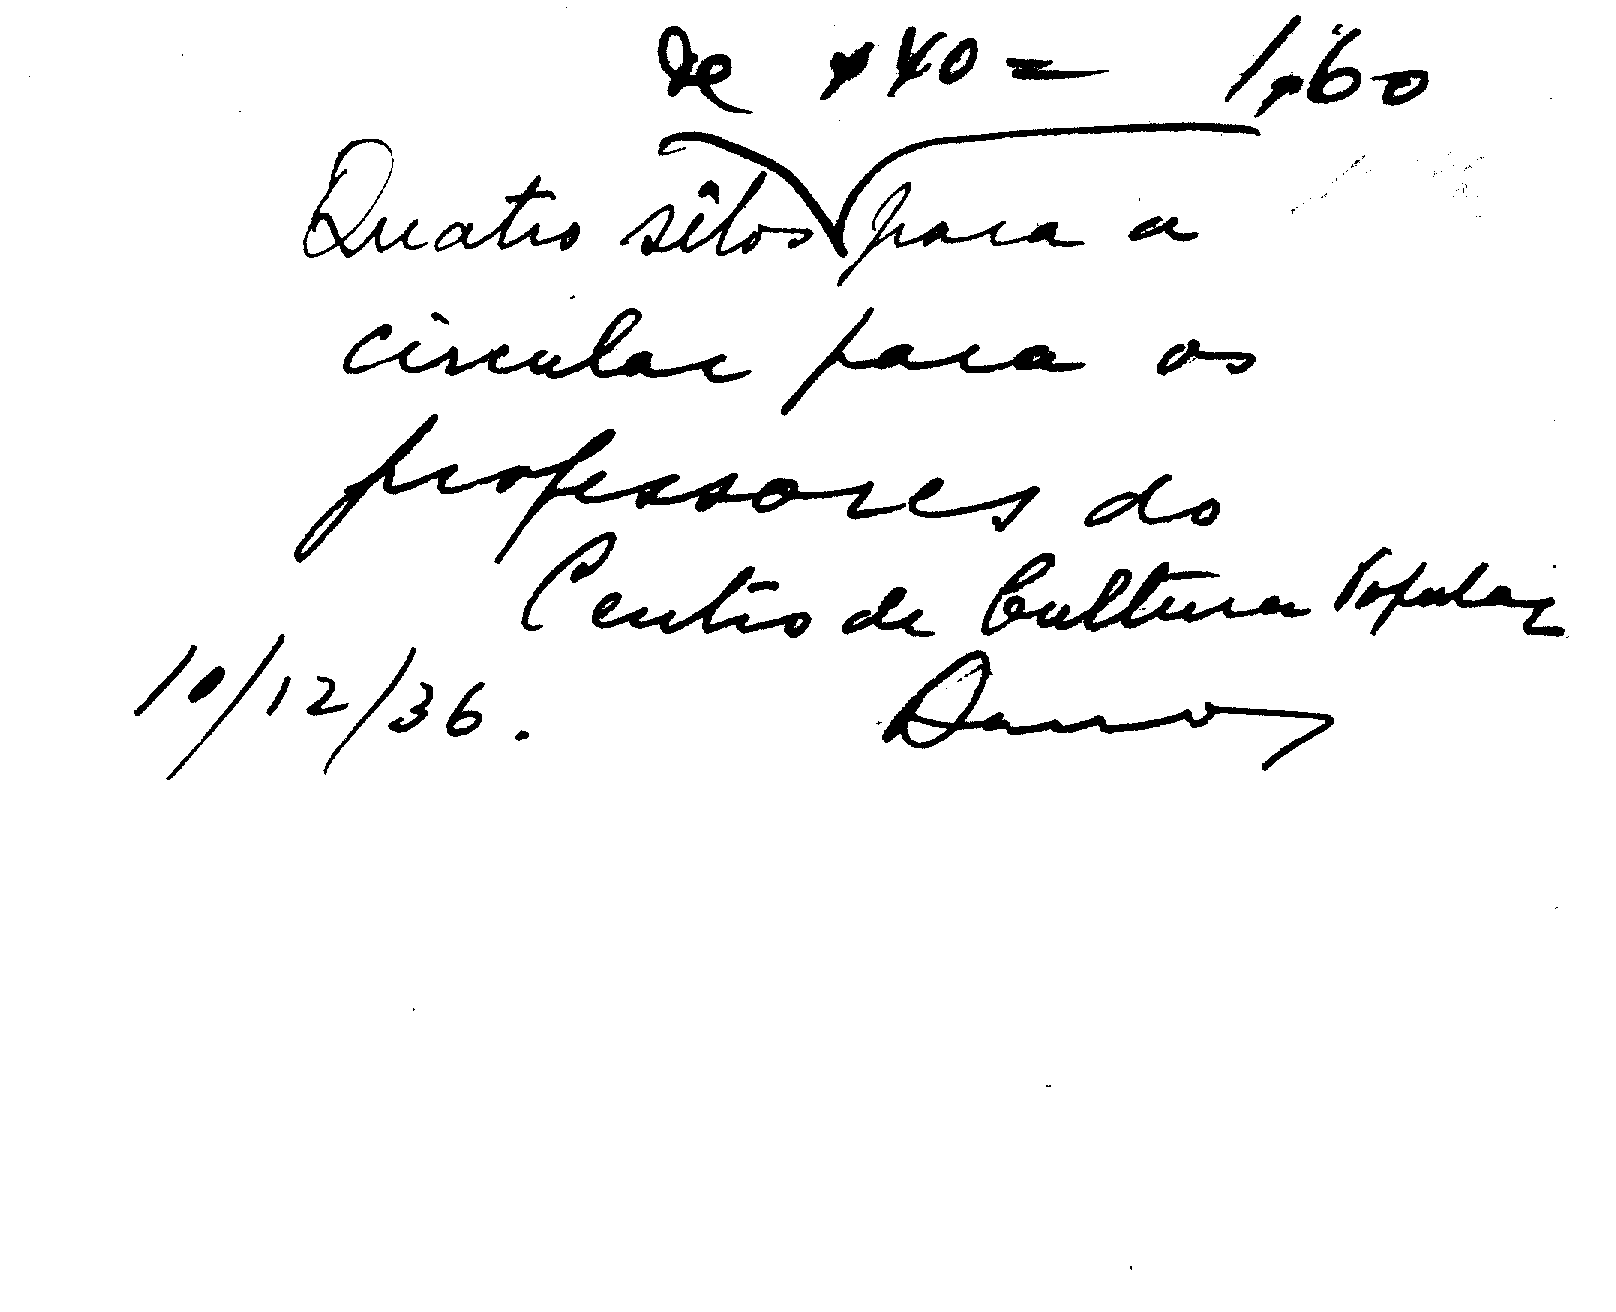 de $40 = 1$60
Quatro sêlos para a
circular para os
professores do
Centro de Cultura Popular
10/12/36.